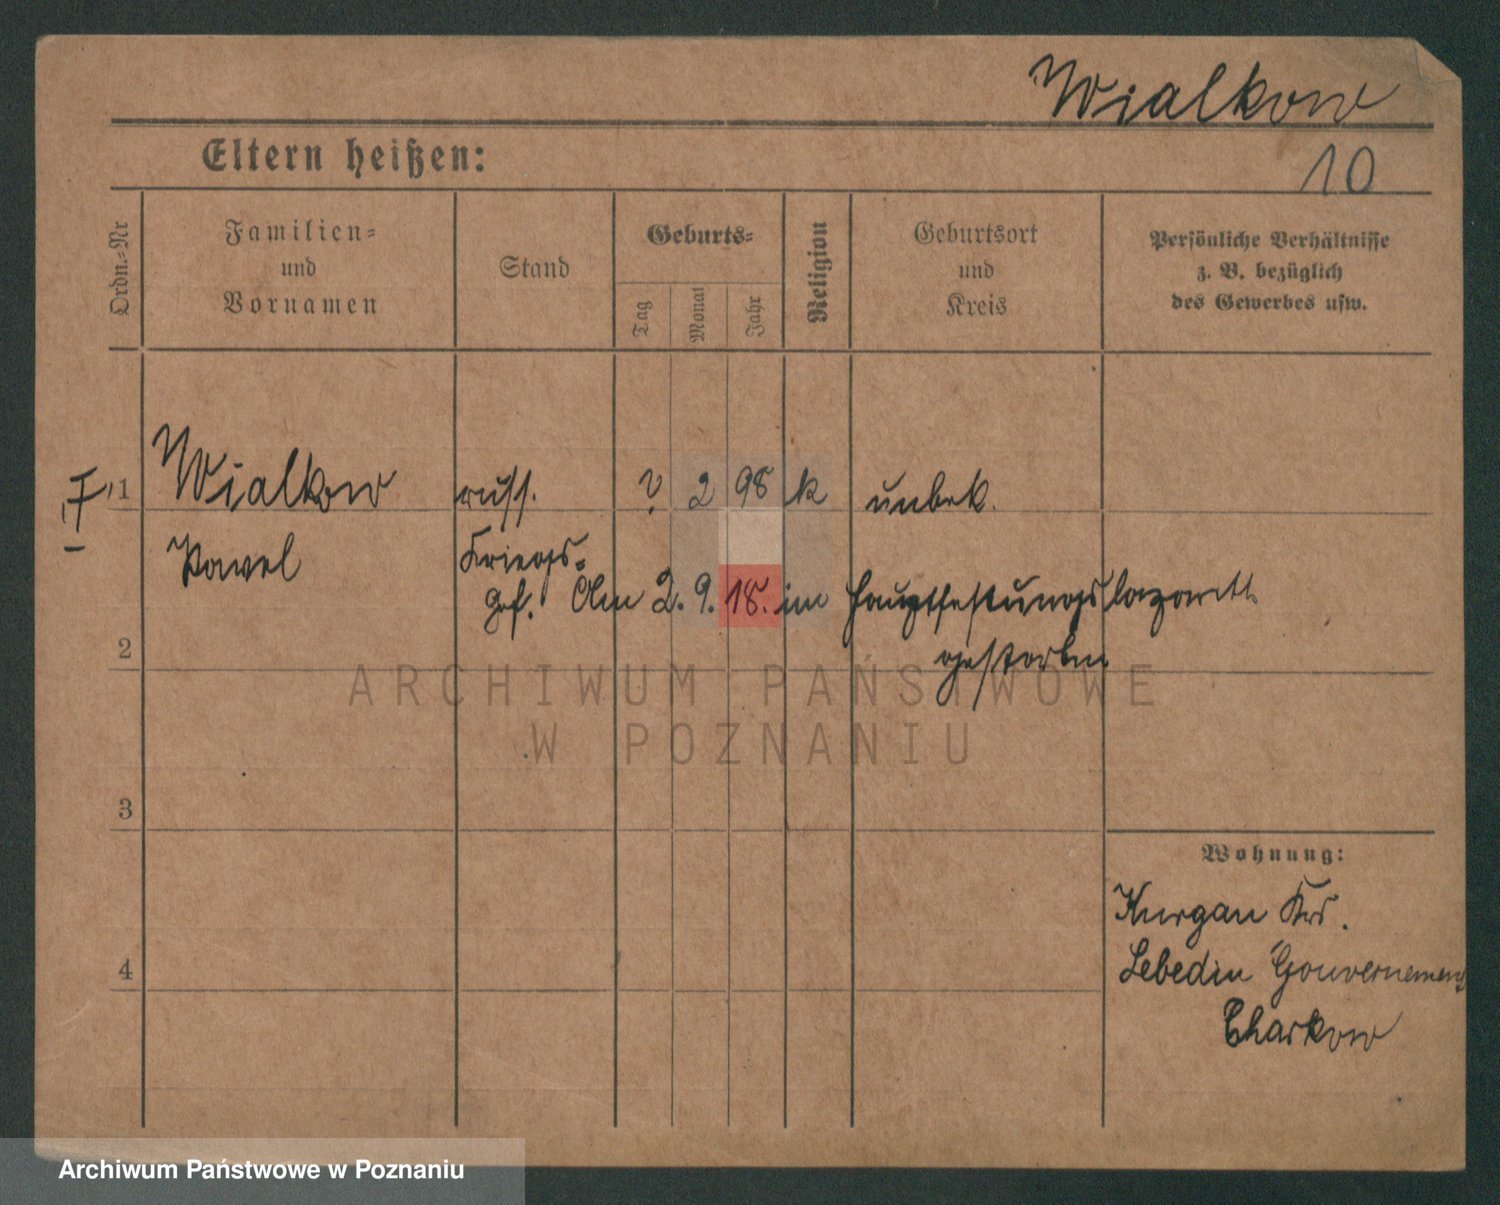 Wialkow
10
Eltern heißen:
Ordn.-Nr
Familien-
und
Vornamen
Stand
Geburts-
Tag
Monat
Jahr
Religion
Geburtsort
und
Kreis
Persönliche Verhältnisse
z. B. bezüglich
des Gewerbes usw.
1 Wialkow russ. ? 2 98 k unbek.
Pawel Kriegs-
gef. Am 2. 9. 18. im Hauptfestungslazarett
gestorben
2
3
4
Wohnung:
Kurgan Krs.
Lebedin Gouvernement
Charkow
ARCHIWUM PAŃSTWOWE
W POZNANIU
Archiwum Państwowe w Poznaniu